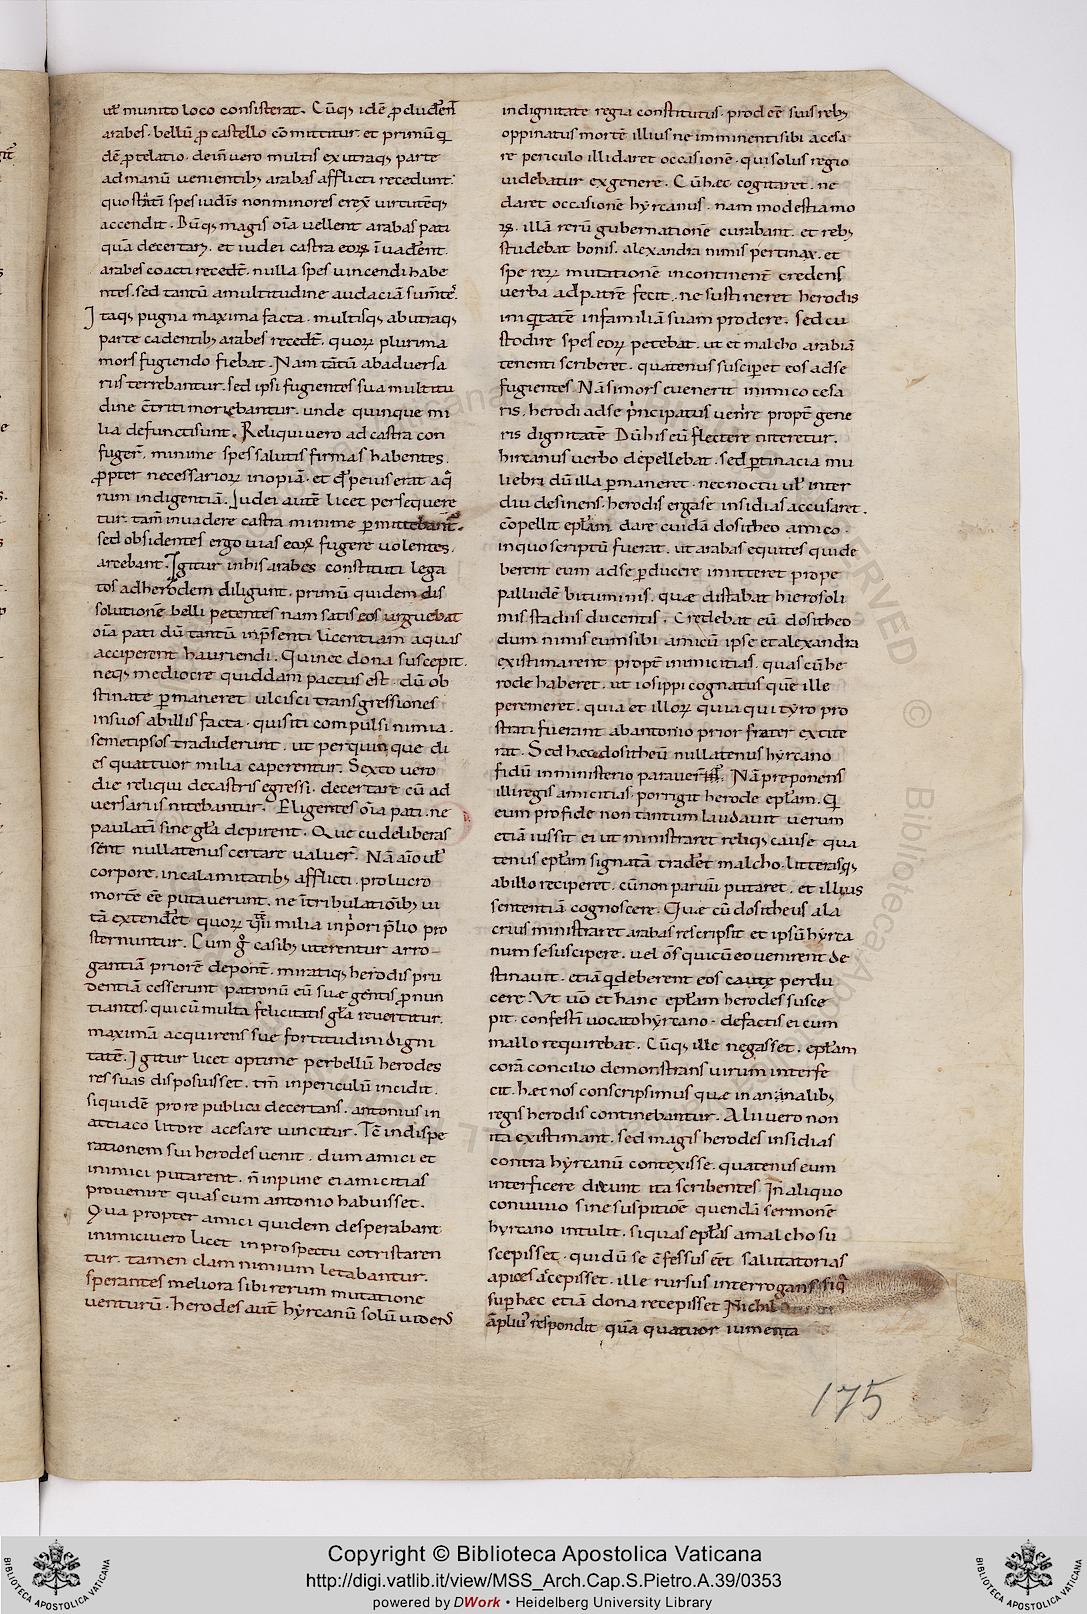 uel munito loco consisterat. Cūq; idē ꝓcluderēt
arabes. bellū ꝓ castello cōmittitur. et primū qi
dē ꝓtelatio. deīn uero multis ex utraq; parte
ad manū uenientib; arabas afflicti recedunt.
quo statī spes iudīs non minores erex uirtutēq;
accendit. Dūq; magis oīa uellent arabas pati
quā decertare. et iudei castra eoꝝ īuadent.
arabes coacti recedēt. nulla spes uincendi habe
ntes. sed tantū a multitudine audaciā sumītes.
Itaq; pugna maxima facta. multisq; ab utraq;
parte cadentib; arabes recedēt. quoꝝ plurima
mors fugiendo fiebat. Nam tātū ab aduersa
riis terrebantur. sed ipsi fugientes sua multitu
dine cōtriti moriebantur. unde quinque mi
lia defuncti sunt. Reliqui uero ad castra con
fugerī. minime spes salutis firmas habentes.
ꝓpter necessarioꝝ inopiā. et qđ peius erat aqa
rum indigentiā. Iudei autē licet persequere
tur. tam inuadere castra minime ꝑmittebant.
sed obsidentes ergo uias eoꝝ fugere uolentes.
arcebant. Igitur in his arabes constituti lega
tos ad herodem diligunt. primū quidem dis
solutionē belli petentes nam satis eos urguebat
oīa pati dū tantū in p̄senti licentiam aquas
acciperent hauriendi. Qui nec dona suscepit.
neq; mediocre quiddam pactus est. dū ob
stinate ꝑmaneret ulcisci transgressiones
in suos ab illis facta. qui siti compulsi nimia.
semetipsos tradiderunt. ut per quinque di
es quattuor milia caperentur. Sexto uero
die reliqui de castris egressi. decertare cū ad
uersariis nitebantur. Eligentes oīa pati. ne
paulatī sine gła depirent. Que cū deliberas
sent nullatenus certare ualuer̄. Nā aīo uel
corpore. in calamitatib; afflicti. pro lucro
mortē eē putauerunt. ne ī tribulatiōib; ui
tā extenderēt quoꝝ milia in p̄ori p̄lio pro
sternuntur. Cum g° casib; uterentur arro
gantiā priorē deponēt. miratiq; herodis pru
dentiā cesserunt patronū eū suę gentis ꝓnun
tiantes. qui cū multa felicitatis gła reuertitur.
maximā acquirens suę fortitudini digni
tatē. Igitur licet optime per bellū herodes
res suas disposuisset. tm̄ in periculū incidit.
siquidē pro re publica decertans. antonius in
actiaco litore a cesare uincitur. Tē in dispe
rationem sui herodes uenit. dum amici et
inimici putarent. n̄ inpune ei amicitias
prouenire quas cum antonio habuisset.
Qua propter amici quidem desperabant.
inimici uero licet in prospectu cōtristaren
tur. tamen clam nimium letabantur.
sperantes meliora sibi rerum mutatione
uenturū. herodes aut̄ hyrcanū solū uiđens
in dignitate regia constitutus. prodeēt suis reb;
oppinatus mortē illius ne imminenti sibi a cesa
re periculo illi daret occasionē. qui solus regio
uidebatur ex genere. Cū hæc cogitaret. ne
daret occasionē hyrcanus. nam modestia mo
ꝝ. illā rerū gubernationē curabant. et reb;
studebat bonis. alexandra nimis pertinax. et
spe reꝝ mutationē in continenti credens
uerba ad patrē fecit. ne sustineret herodis
iniqtatē in familiā suam prodere. sed cu
stodire spes eoꝝ petebat. ut et malcho arabiā
tenenti scriberet. quatenus susciperet eos ad se
fugientes. Nā si mors euenerit inimico cesa
ris. herodi ad se p̄ncipatus uenīre propt̄ gene
ris dignitatē Dū his eū flectere niteretur.
hircanus uerbo depellebat. sed ꝑtinacia mu
liebri dū illa ꝑmaneret. nec noctu uel inter
diu desinens. herodis erga se insidias accusaret.
cōpellit epłam dare cuidā dositheo amico.
in quo scriptū fuerat. ut arabas equites qui de
berent eum ad se ꝑducere imitteret prope
palludē bituminis. quæ distabat hierosoli
mis stadiis ducentis. Credebat eū dositheo
dum nimis eum sibi amicū ipse et alexandra
existimarent propt̄ inimicitias. quas cū he
rode haberet. ut iosippi cognatus quē ille
peremeret. quia et illoꝝ quia qui tyro pro
strati fuerant ab antonio prior frater extite
rat. Sed hæc dositheū nullatenus hyrcano
fidū in ministerio parauer. Nā preponens
illi regis amicitias. porrigit herode epłam. Qi
eum pro fide non tantum laudauit uerum
etiā iussit ei ut ministraret reliq; cause qua
tenus epłam signatā traderet malcho. litterasq;
ab illo reciperet. cū non paruū putaret. et illius
sententiā cognoscere. Quæ cū dositheus ala
crius ministraret arabas rescripsit et ipsū hyrca
num se suscipere. uel oēs quicū eo uenirent de
stinauit. etiā q deberent eos caute perdu
cere. Vt uō et hanc epłam herodes susce
pit. confestī uocato hyrcano. de factis ei cum
mallo requirebat. Cūq; ille negasset. epłam
corā concilio demonstrans uirum interfe
cit. hæc nos conscripsimus quæ in annalib;
regis herodis continebantur. Alii uero non
ita existimant. sed magis herodes insidias
contra hyrcanū contexisse. quatenus eum
interficere dicunt ita scribentes. In aliquo
conuiuio sine suspitiōe quendā sermonē
hyrcano intulit. si quas epłas a malcho su
scepisset. qui dū se cōfessus eēt salutatorias
apices accepisset. ille rursus interrogans si qa
sup hæc etiā dona recepisset Nichil
āplius respondit quā quatuor iumenta
175
Copyright © Biblioteca Apostolica Vaticana
http://digi.vatlib.it/view/MSS_Arch.Cap.S.Pietro.A.39/0353
powered by DWork • Heidelberg University Library